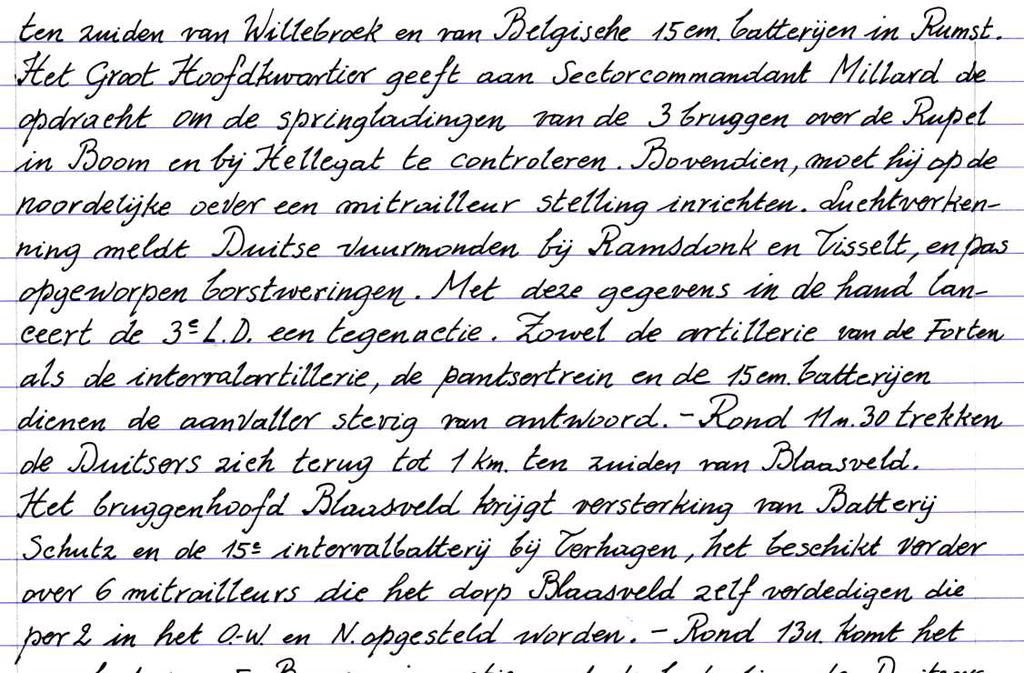 ten zuiden van Willebroek en van Belgische 15cm. batterijen in Rumst.
Het Groot Hoofdkwartier geeft aan Sectorcommandant Millard de
opdracht om de springladingen van de 3 bruggen over de Rupel
in Boom en bij Hellegat te controleren. Bovendien, moet hij op de
noordelijke oever een mitrailleur stelling inrichten. Luchtverken-
ning meldt Duitse vuurmonden bij Ramsdonk en Tisselt, en pas
opgeworpen borstweringen. Met deze gegevens in de hand lan-
ceert de 3e L.D. een tegenactie. Zowel de artillerie van de Forten
als de intervalartillerie, de pantsertrein en de 15cm. batterijen
dienen de aanvaller stevig van antwoord. - Rond 11u.30 trekken
de Duitsers zich terug tot 1 km. ten zuiden van Blaasveld.
Het bruggenhoofd Blaasveld krijgt versterking van Batterij
Schutz en de 15e intervalbatterij bij Terhagen, het beschikt verder
over 6 mitrailleurs die het dorp Blaasveld zelf verdedigen die
per 2 in het O.-W. en N. opgesteld worden. - Rond 13u. komt het